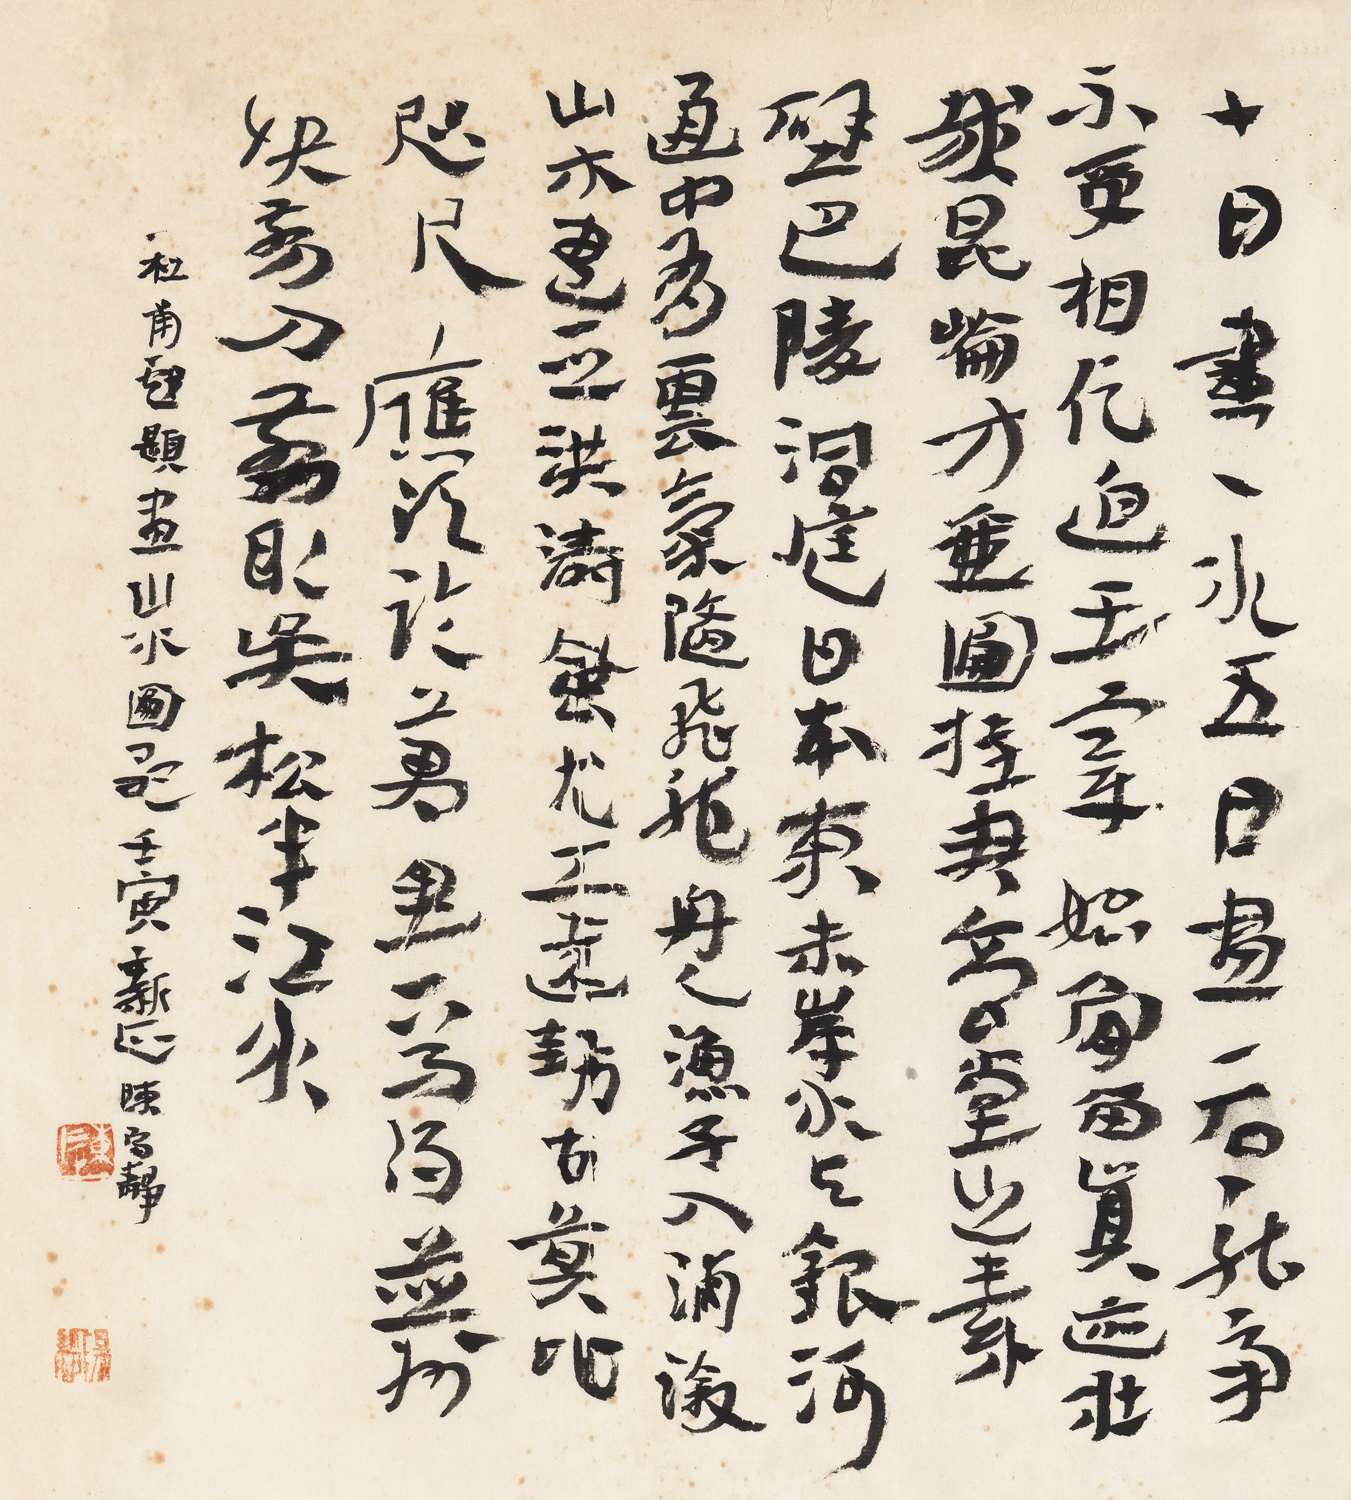 十日畫一水五日畫一石能事
不受相促迫王宰始肯留真迹壯
哉昆崙方壺圖挂君高堂之素
壁巴陵洞庭日本東赤岸水与銀河
通中有雲氣隨飛龍舟人漁子入浦漵
山木盡亞洪濤風尤工遠勢古莫比
咫尺應須論萬里焉得並州
快剪刀剪取吳松半江水
杜甫戲題畫山水圖歌壬寅新正陳靜